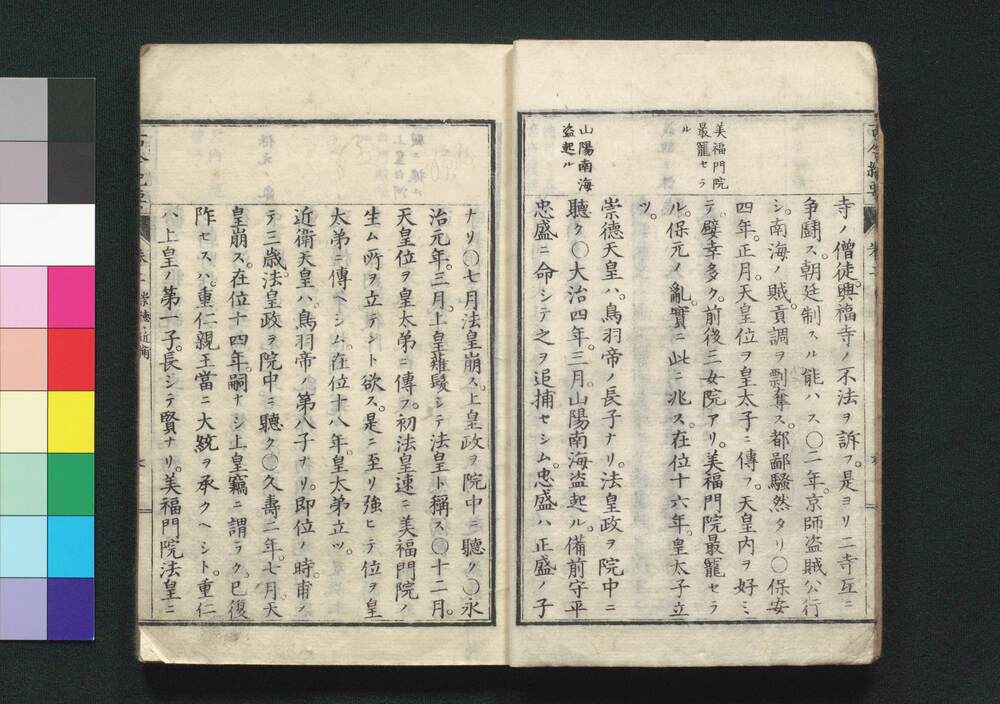 美福門院
最寵セラ
ル
山陽南海
盗起ル
寺ノ僧徒。興福寺ノ不法ヲ訴フ。是ヨリ二寺互ニ
争闘ス。朝廷制スル能ハス〇二年。京師盗賊公行
シ。南海ノ賊。貢調ヲ剽奪ス。都鄙騒然タリ〇保安
四年。正月。天皇位ヲ皇太子ニ傳フ。天皇内ヲ好ミ
テ。嬖幸多ク。前後三女院アリ。美福門院最寵セラ
ル。保元ノ亂。實ニ此ニ兆ス。在位十六年。皇太子立
ツ。
崇德天皇ハ。鳥羽帝ノ長子ナリ。法皇政ヲ院中ニ
聽ク〇大治四年。三月。山陽南海盗起ル。備前守平
忠盛ニ命シテ之ヲ追捕セシム。忠盛ハ正盛ノ子
ナリ〇七月法皇崩ス。上皇政ヲ院中ニ聽ク〇永
治元年。三月。上皇薙髮シテ法皇ト稱ス〇十二月。
天皇位ヲ皇太弟ニ傳フ。初法皇速ニ美福門院ノ
生ム所ヲ立テント欲ス。是ニ至リ強ヒテ位ヲ皇
太弟ニ傳ヘシム。在位十八年。皇太弟立ツ。
近衛天皇ハ。鳥羽帝ノ第八子ナリ。即位ノ時。甫ノ
テ三歳。法皇政ヲ院中ニ聽ク〇久壽二年。七月。天
皇崩ス。在位十四年。嗣ナシ上皇竊ニ謂ラク。已復
阼セスハ。重仁親王當ニ大統ヲ承クヘシト。重仁
ハ上皇ノ第一子。長シテ賢ナリ。美福門院法皇ニ